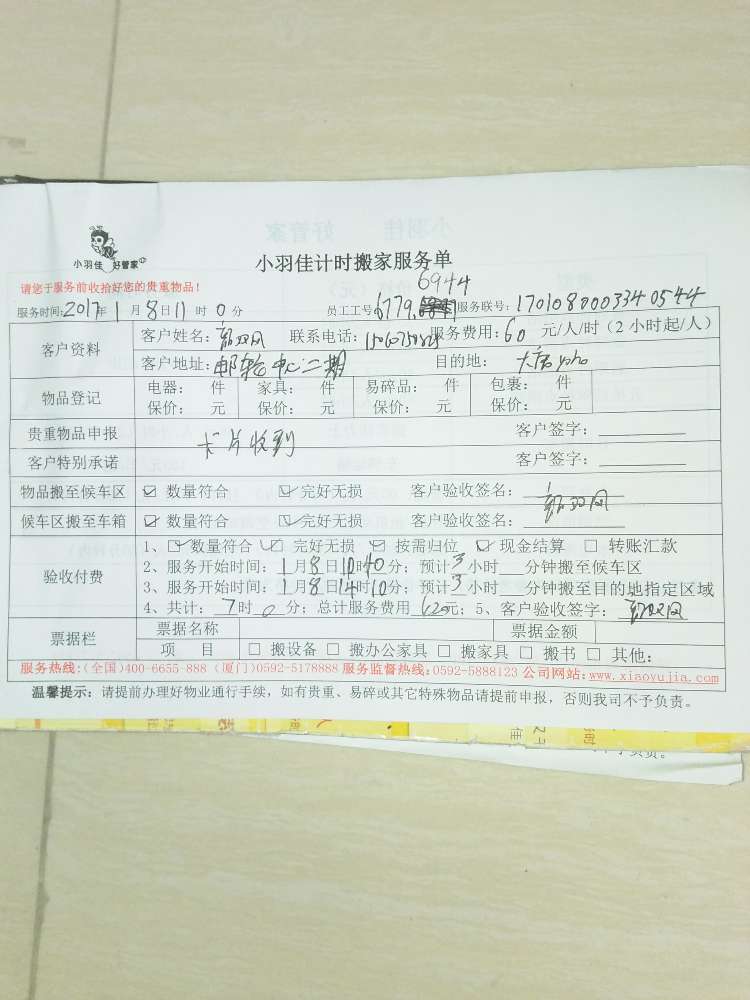 小羽佳 好管家
小羽佳计时搬家服务单
请您于服务前收拾好您的贵重物品！
6944
服务时间:2017年1月8日11时0分 员工工号:6779, 服务联号:1701080003340544
客户资料
客户姓名: 联系电话: 服务费用:60 元/人/时（2小时起/人）
客户地址:邮轮中心二期 目的地:
物品登记
电器： 件 家具： 件 易碎品： 件 包裹： 件
保价： 元 保价： 元 保价： 元 保价： 元
贵重物品申报 卡片收到 客户签字：
客户特别承诺 客户签字：
物品搬至候车区 ☑ 数量符合 ☑ 完好无损 客户验收签名：
候车区搬至车箱 ☑ 数量符合 ☑ 完好无损 客户验收签名：
验收付费
1、☑ 数量符合 ☑ 完好无损 ☑ 按需归位 ☑ 现金结算 □ 转账汇款
2、服务开始时间：1月8日10时40分；预计3小时 分钟搬至候车区
3、服务开始时间：1月8日14时10分；预计3小时 分钟搬至目的地指定区域
4、共计：7时0分；总计服务费用620元；5、客户验收签字：
票据栏
票据名称 票据金额
项 目 □ 搬设备 □ 搬办公家具 □ 搬家具 □ 搬书 □ 其他:
服务热线:(全国)400-6655-888 (厦门)0592-5178888 服务监督热线:0592-5888123 公司网站:www.xiaoyujia.com
温馨提示：请提前办理好物业通行手续，如有贵重、易碎或其它特殊物品请提前申报，否则我司不予负责。